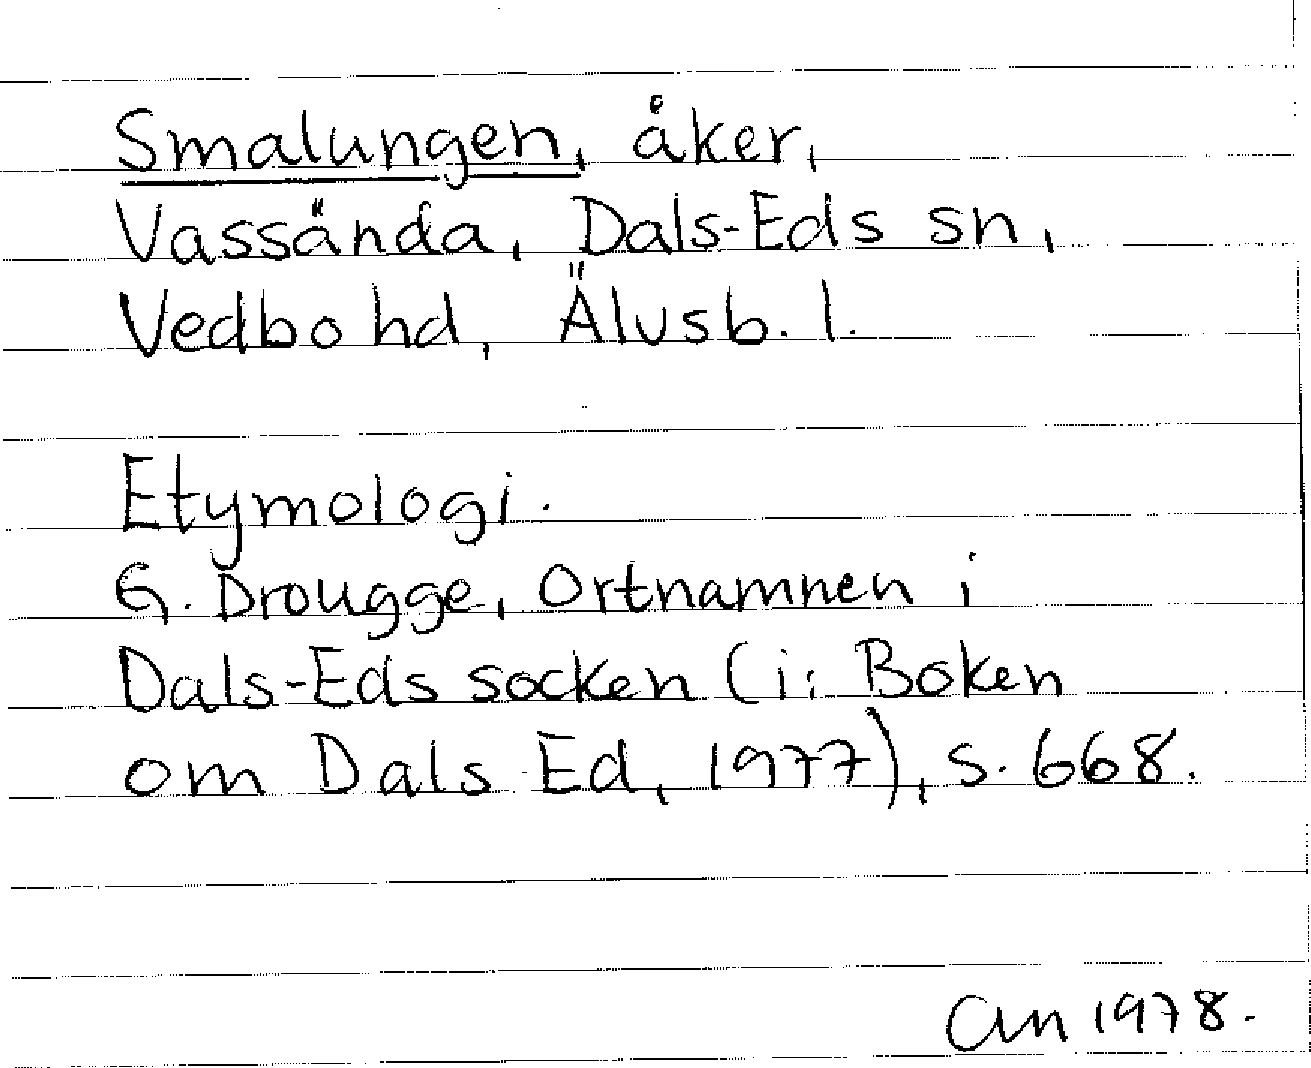 Smalungen, åker,
Vassända, Dals-Eds sn,
Vedbo hd, Älvsb. l.
Etymologi.
G. Drougge, Ortnamnen i
Dals-Eds socken (i: Boken
om Dals Ed, 1977), s. 668.
1978.